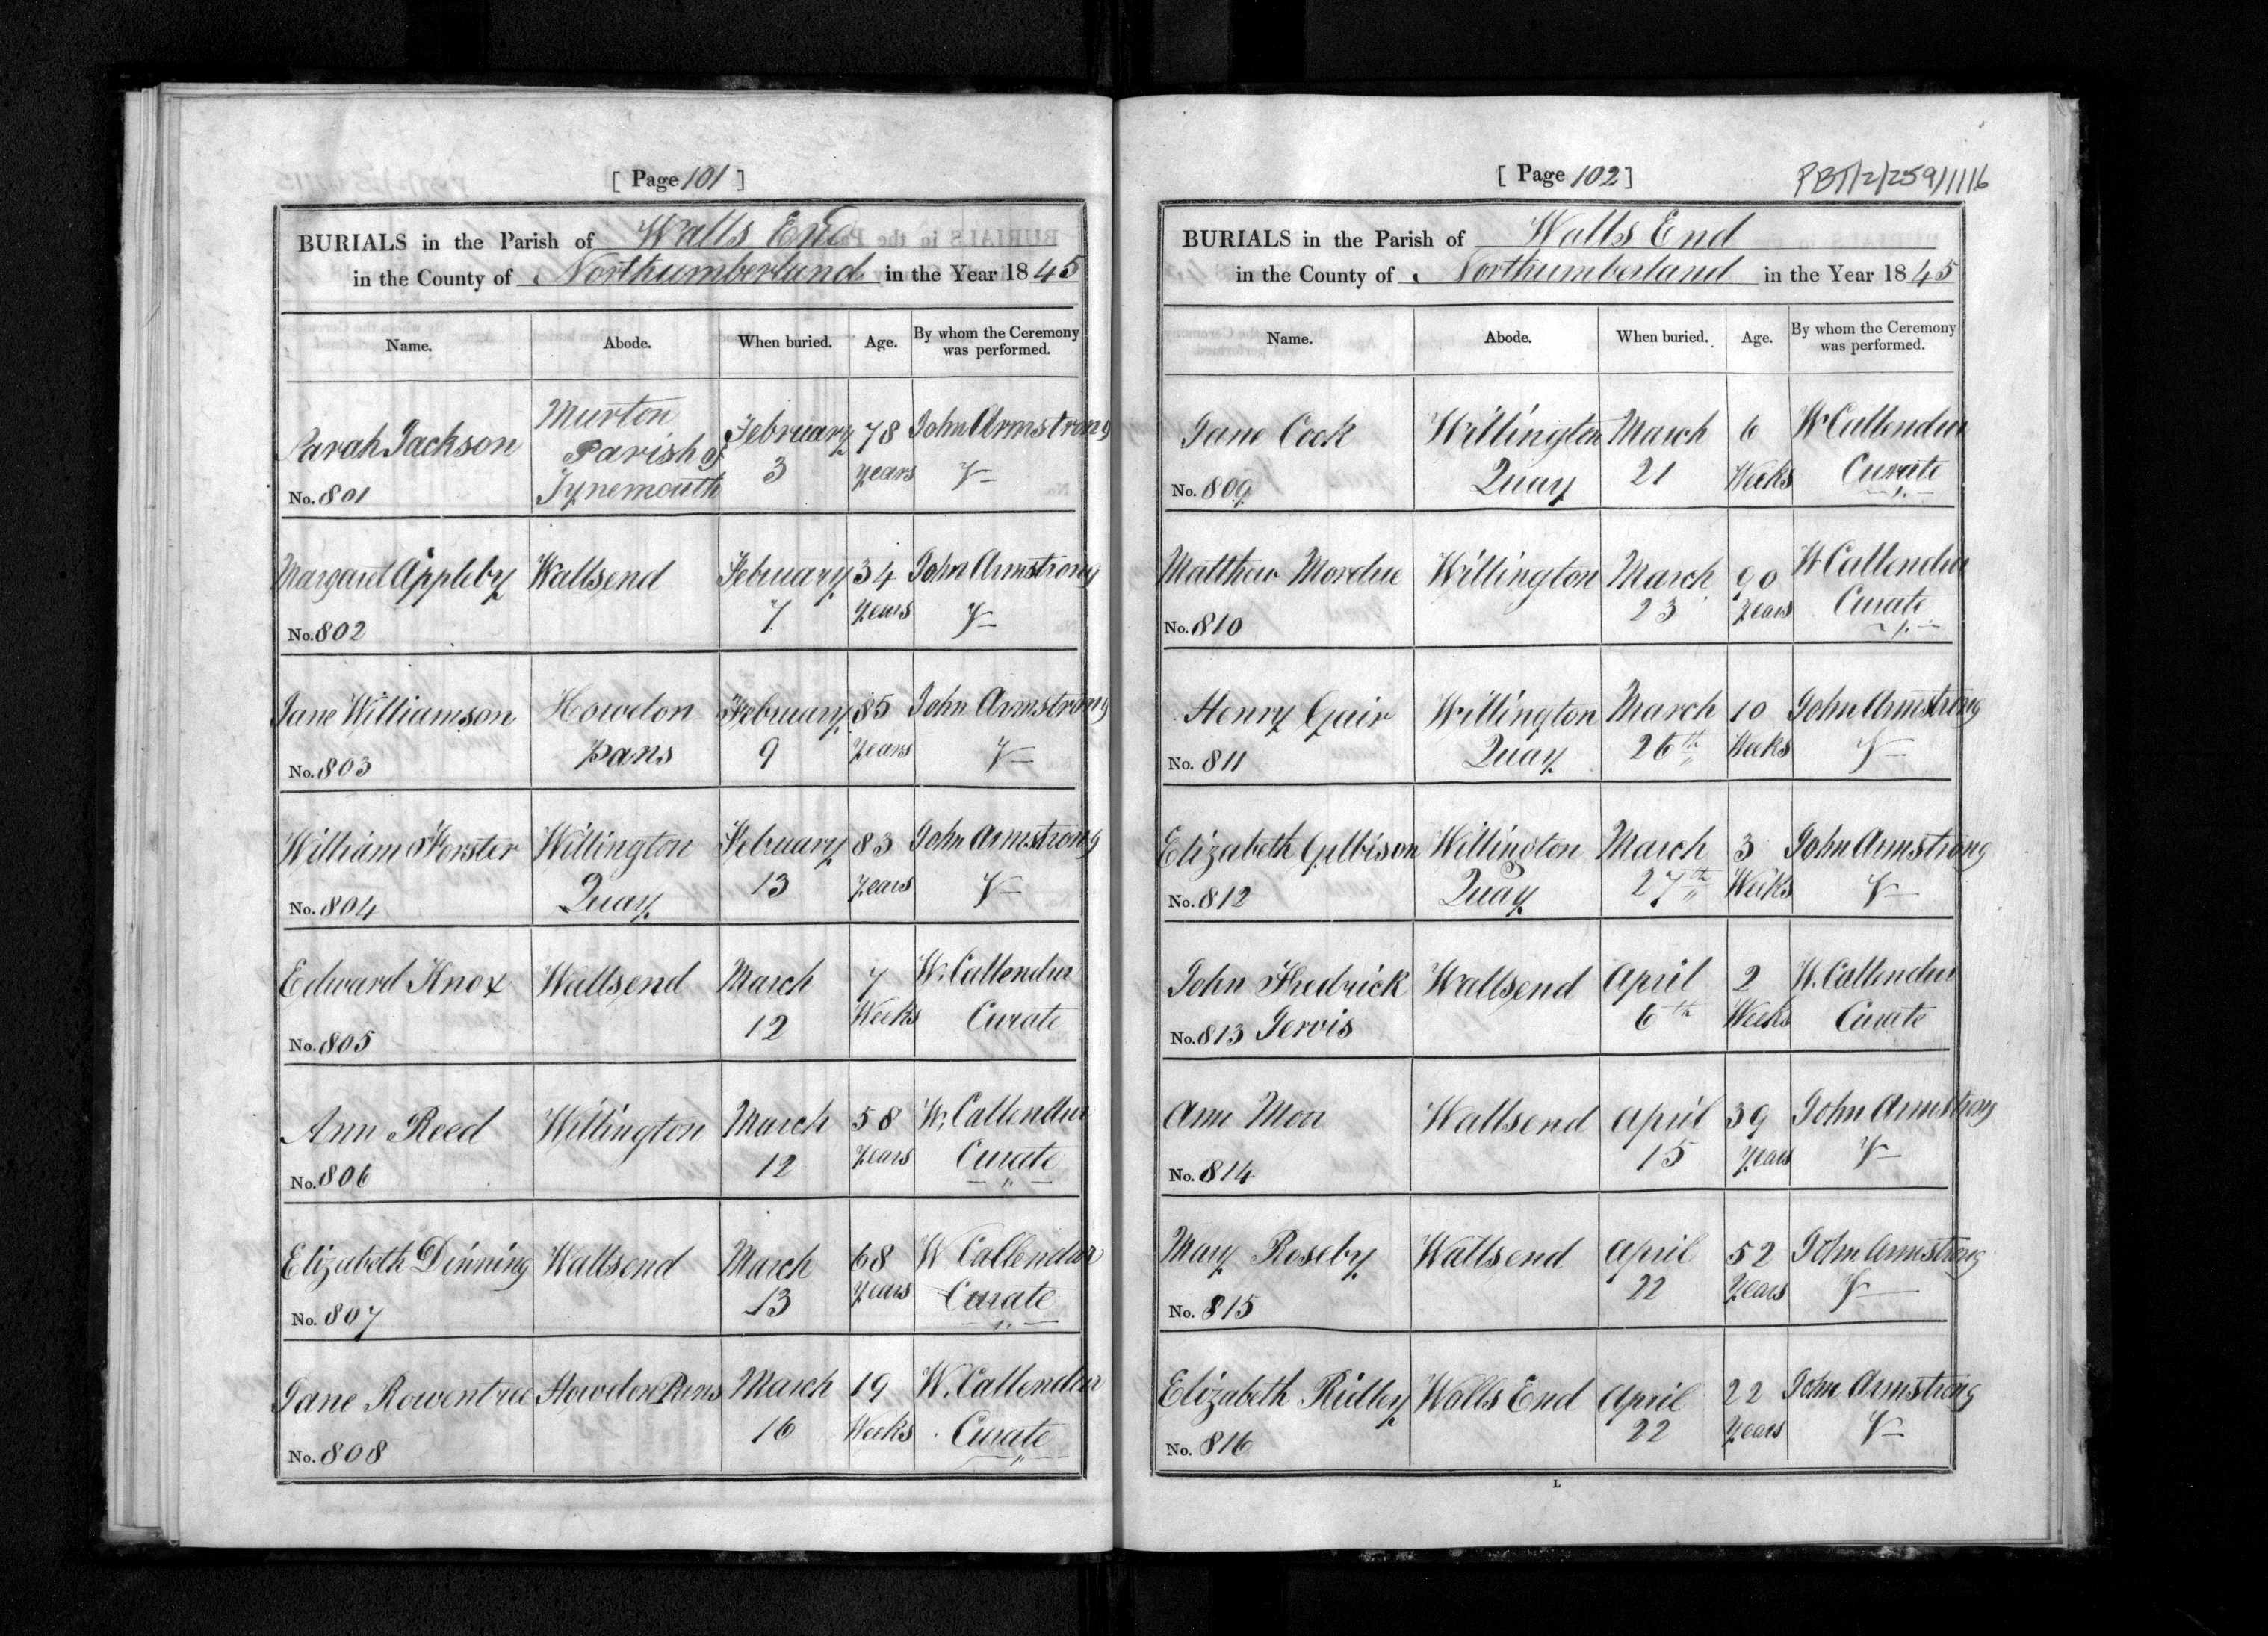 [ Page 101 ]
BURIALS in the Parish of Walls End
in the County of Northumberland in the Year 1845
Name. Abode. When buried. Age. By whom the Ceremony was performed.
Sarah Jackson
No. 801
Murton
Parish of
Tynemouth
February
3
78
years
John Armstrong
V
Margaret Appleby
No. 802
Wallsend
February
7
34
years
John Armstrong
V
Jane Williamson
No. 803
Howdon
Pans
February
9
85
years
John Armstrong
V
William Forster
No. 804
Willington
Quay
February
13
83
years
John Armstrong
V
Edward Knox
No. 805
Wallsend
March
12
7
Weeks
W. Callendar
Curate
Ann Reed
No. 806
Willington
March
12
58
years
W. Callendar
Curate
Elizabeth Dinning
No. 807
Wallsend
March
13
68
years
W Callendar
Curate
Jane Rowentree
No. 808
Howdon Pans
March
16
19
Weeks
W. Callendar
Curate
[ Page 102 ]
PBT/2/259/1/16
BURIALS in the Parish of Walls End
in the County of Northumberland in the Year 1845
Name. Abode. When buried. Age. By whom the Ceremony was performed.
Jane Cock
No. 809
Willington
Quay
March
21
6
Weeks
W Callendar
Curate
Matthew Mordue
No. 810
Willington
March
23
90
years
W Callendar
Curate
Henry Gair
No. 811
Willington
Quay
March
26th
10
Weeks
John Armstrong
V
Elizabeth Gilbison
No. 812
Willington
Quay
March
27th
3
Weeks
John Armstrong
V
John Fredrick
No. 813 Jervis
Wallsend
April
6th
2
Weeks
W. Callendar
Curate
Ann Moor
No. 814
Wallsend
April
15
39
years
John Armstrong
V
Mary Roseby
No. 815
Wallsend
April
22
52
years
John Armstrong
V
Elizabeth Ridley
No. 816
Walls End
April
22
22
years
John Armstrong
V
L